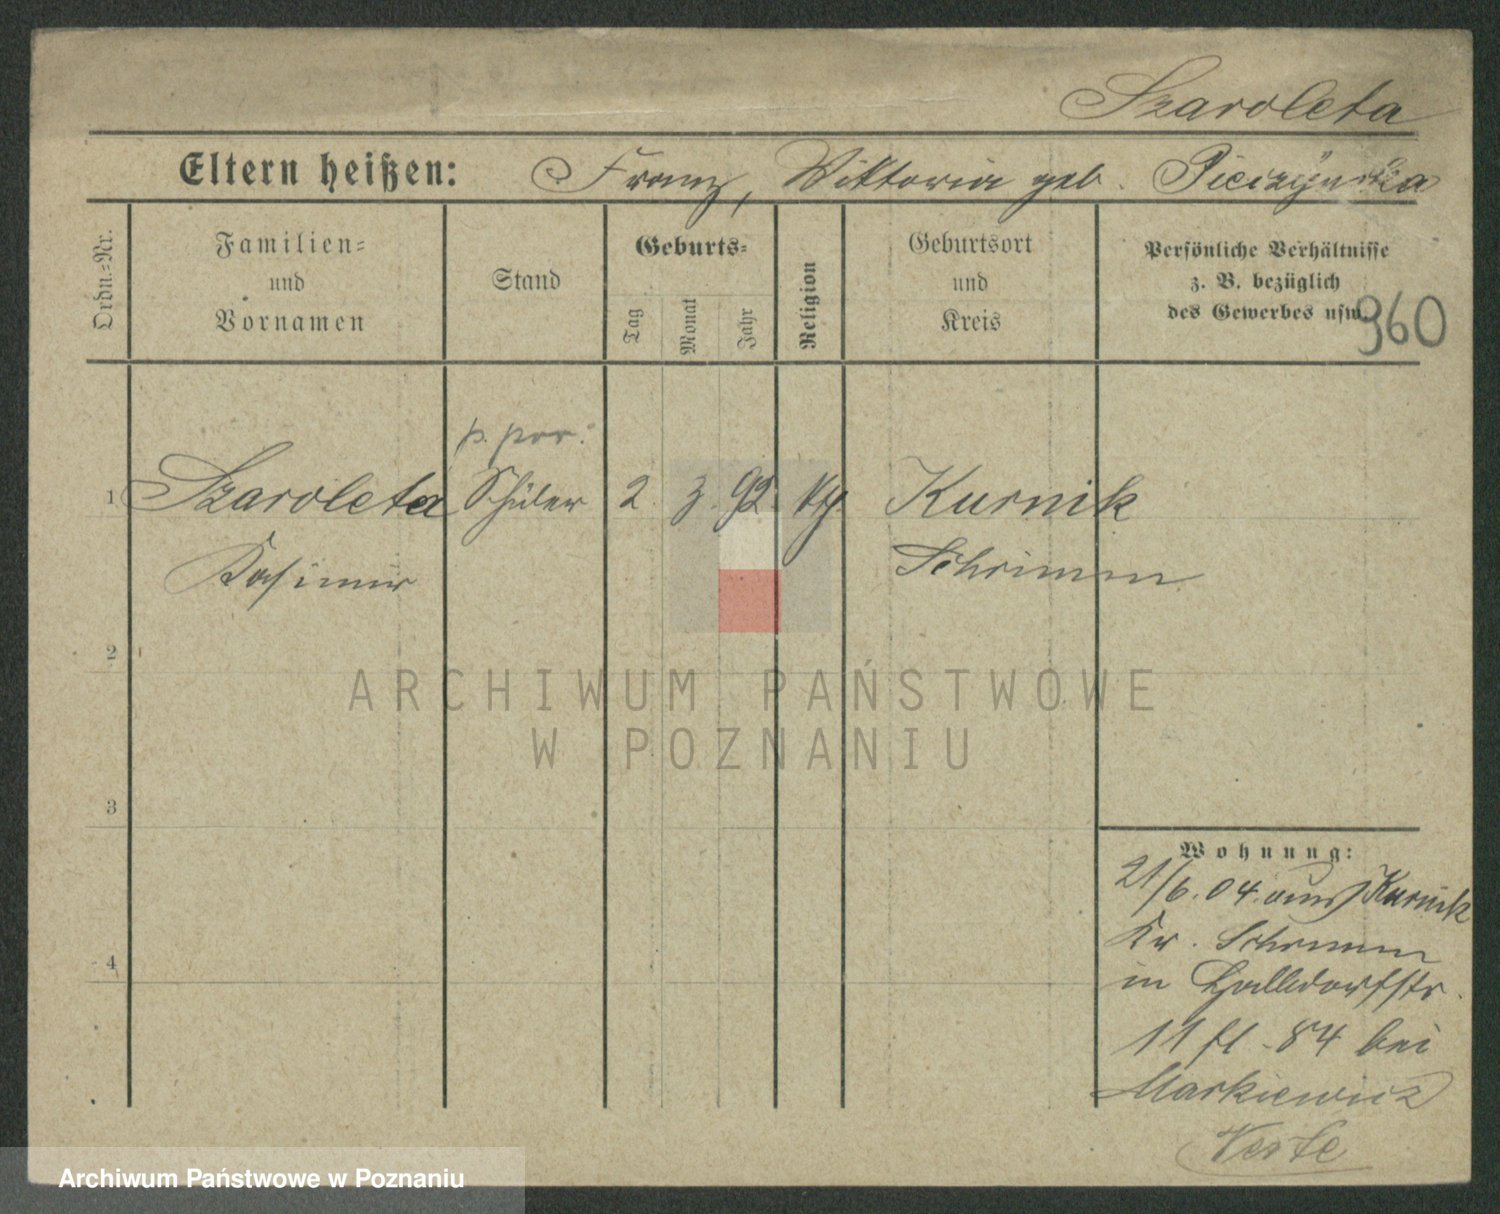 Szaroleta
Eltern heißen: Franz, Viktoria geb. Pieczyńska
Ordn.=Nr.
Familien=
und
Vornamen
Stand
Geburts=
Tag
Monat
Jahr
Religion
Geburtsort
und
Kreis
Persönliche Verhältnisse
z. B. bezüglich
des Gewerbes usw.
960
p. por.
1 Szaroleta Schüler 2. 3. 92. kth. Kurnik
Kasimir Schrimm
2
3
4
Wohnung:
21/6. 04. aus Kurnik
Kr. Schrimm
in Halldorfstr.
11 fl. 84 bei
Markiewicz
Verte
ARCHIWUM PAŃSTWOWE
W POZNANIU
Archiwum Państwowe w Poznaniu